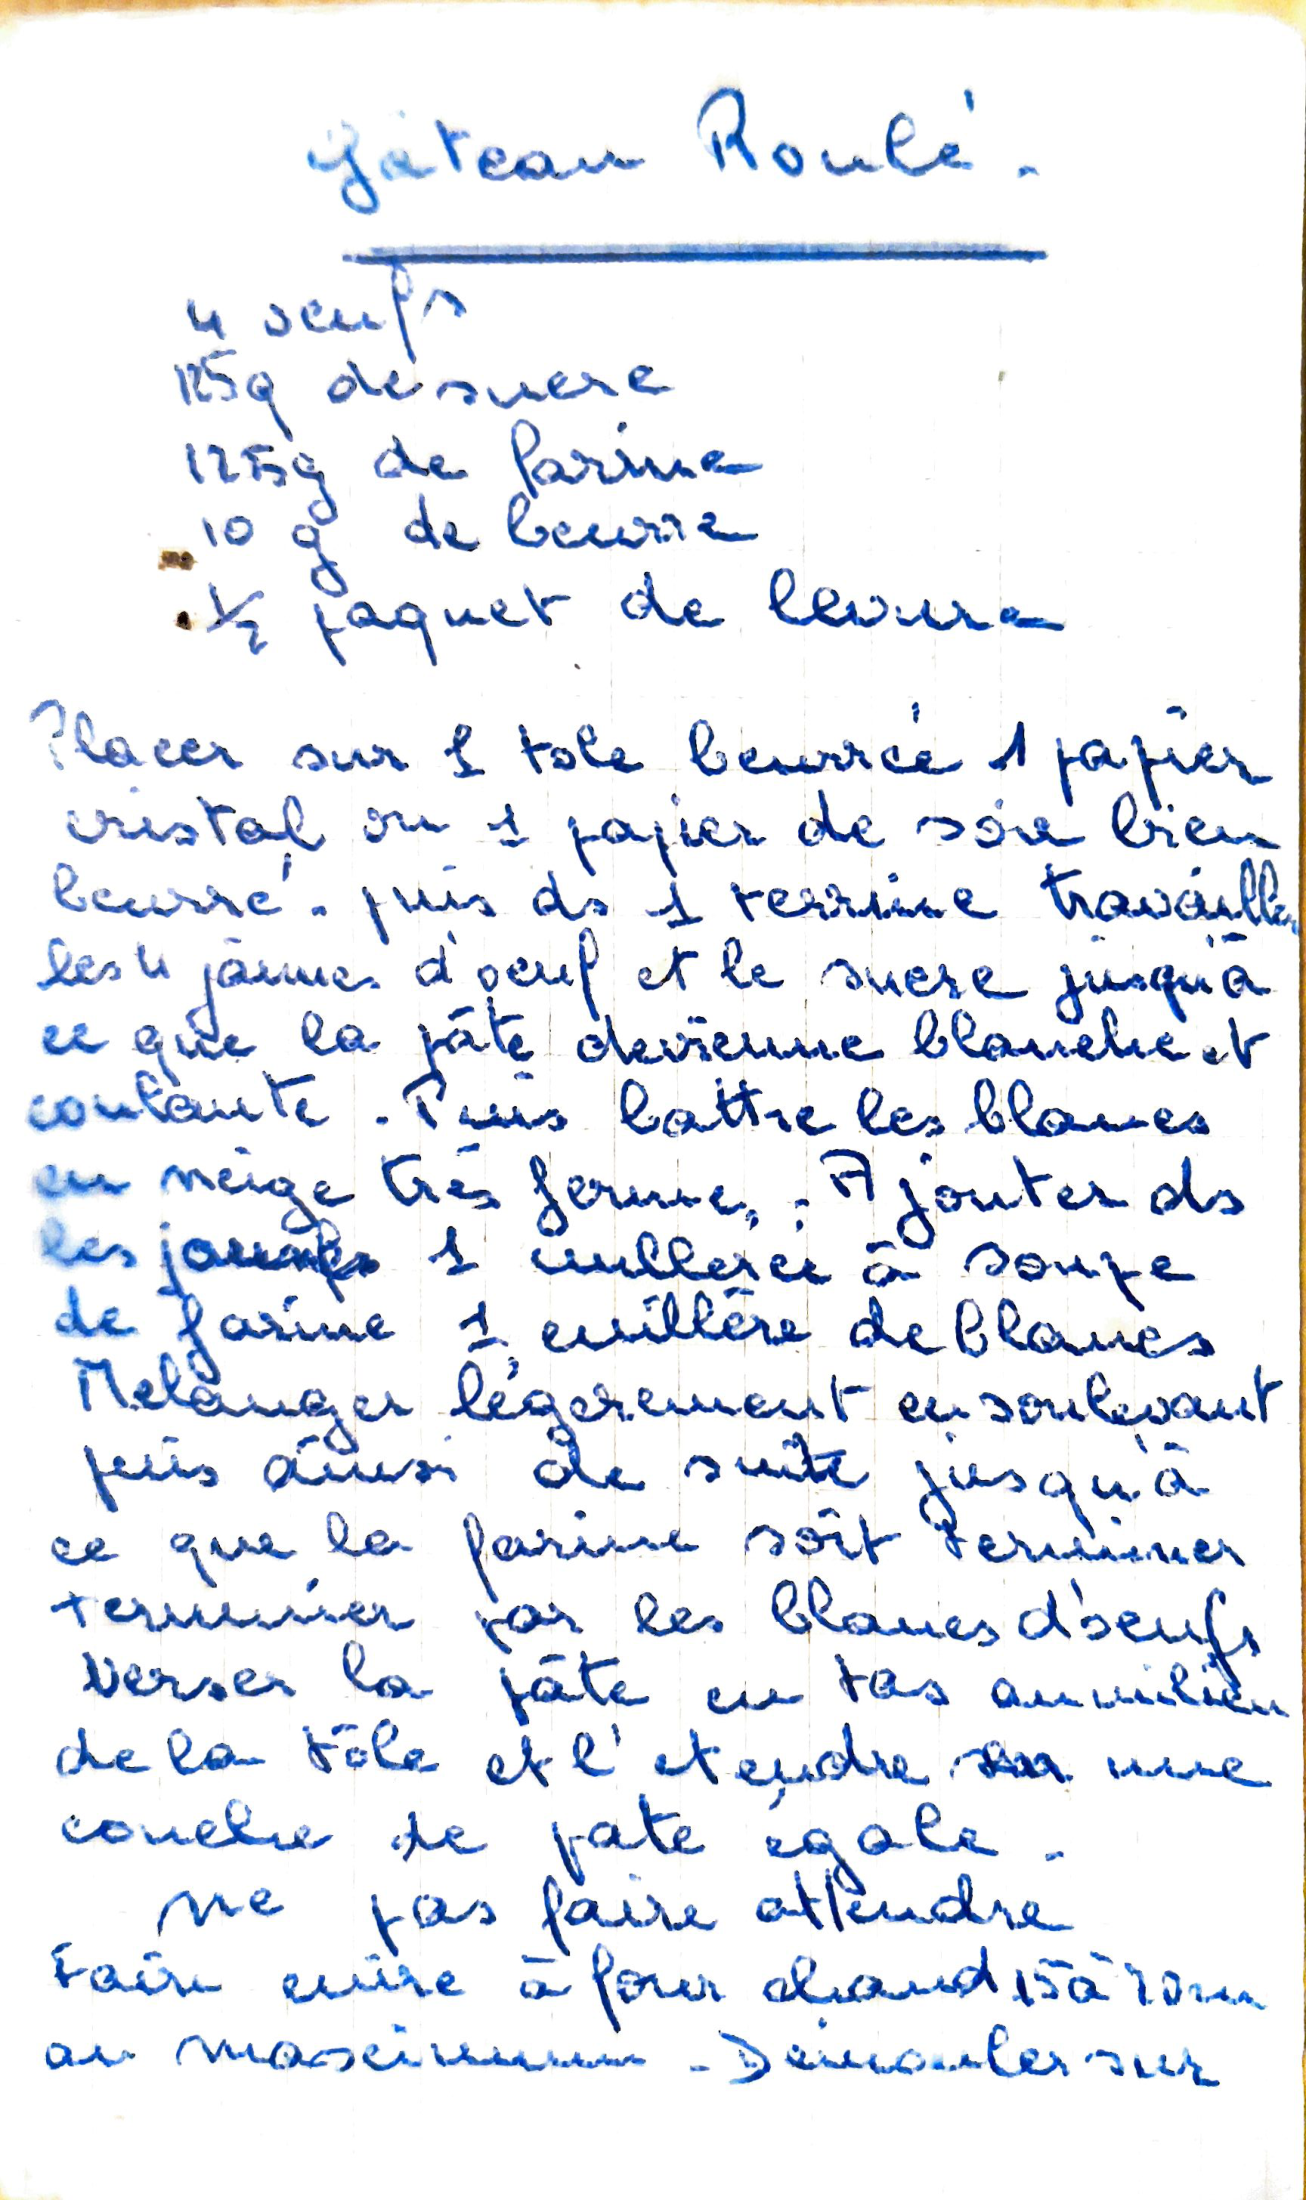 Gâteau Roulé.
4 oeufs
125g de sucre
125g de farine
10 g de beurre
1/2 paquet de levure
Placer sur 1 tole beurrée 1 papier
cristal ou 1 papier de soie bien
beurré. puis ds 1 terrine travailler
les 4 jaunes d'oeuf et le sucre jusqu'à
ce que la pâte devienne blanche et
coulante. Puis battre les blancs
en neige très ferme. Ajouter ds
les jaunes 1 cuillerée à soupe
de farine 1 cuillère de blancs
Melanger légerement en soulevant
puis ainsi de suite jusqu'à
ce que la farine soit terminer
terminer par les blancs d'oeufs
Verser la pâte en tas au milieu
de la tôle et l'etendre en une
couche de pate égale.
Ne pas faire attendre
Faire cuire à four chaud 15 à 20 mn
au maximum. Démouler sur